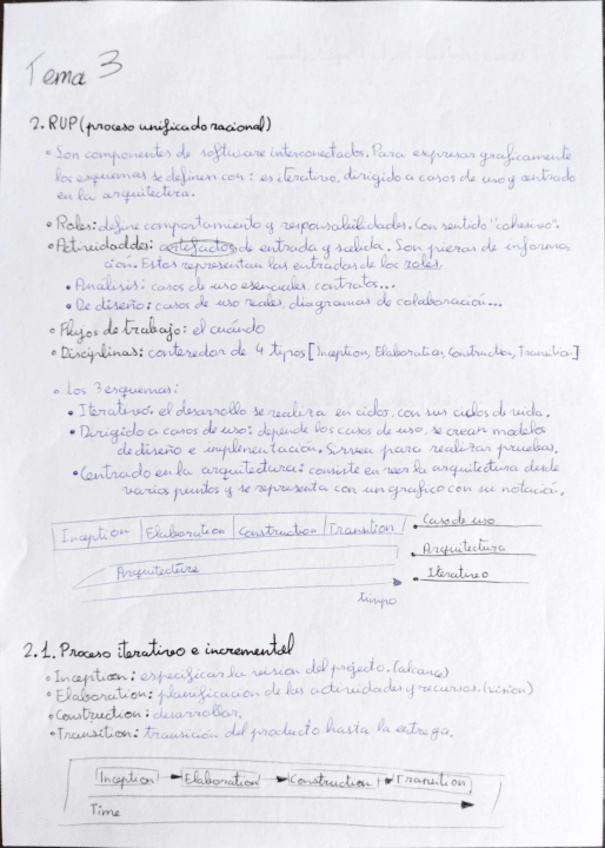 Tema 3
2. RUP (proceso unificado racional)
• Son componentes de software interconectados. Para expresar graficamente
los esquemas se definen con: es iterativo, dirigido a casos de uso y centrado
en la arquitectura.
• Roles: define comportamiento y responsabilidades. Con sentido "cohesivo".
• Actividades: artefactos de entrada y salida. Son piezas de informa
ción. Estas representan las entradas de los roles.
• Análisis: casos de uso esenciales, contratos...
• De diseño: casos de uso reales, diagramas de colaboración...
• Flujos de trabajo: el cuándo
• Disciplinas: contenedor de 4 tipos [Inception, Elaboration, Construction, Transition]
• Los 3 esquemas:
• Iterativo: el desarrollo se realiza en ciclos, con sus ciclos de vida.
• Dirigido a casos de uso: depende los casos de uso, se crean modelos
de diseño e implementación. Sirven para realizar pruebas.
• Centrado en la arquitectura: consiste en ver la arquitectura desde
varios puntos y se representa con un grafico con su notación.
Inception | Elaboration | Construction | Transition
• Caso de uso
Arquitecture
• Arquitectura
• Iterativo
tiempo
2.1. Proceso iterativo e incremental
• Inception: especificar la vision del projecto. (alcance)
• Elaboration: planificacion de las actividades y recursos. (vision)
• Construction: desarrollar.
• Transition: transición del producto hasta la entrega.
Inception → Elaboration → Construction → Transition
Time